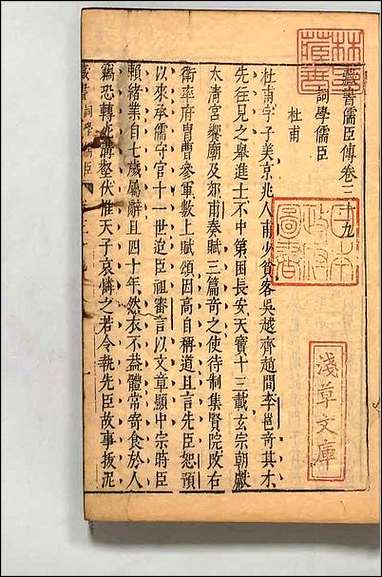 藏書儒臣傳卷三十九
詞學儒臣
杜甫
杜甫字子美京兆人甫少貧客吳越齊趙間李邕奇其才
先往見之舉進士不中第困長安天寶十三載玄宗朝獻
太清宮饗廟及郊甫奏賦三篇奇之使待制集賢院改右
衛率府冑曹參軍數上賦頌因高自稱道且言先臣恕預
以來承儒守官十一世迨臣祖審言以文章顯中宗時臣
賴緒業自七歲屬辭且四十年然衣不蓋體常寄食於人
竊恐轉死溝壑伏惟天子哀憐之若令執先臣故事拔泥
藏書
詞學儒臣
林氏藏書
日本政府圖書
淺草文庫